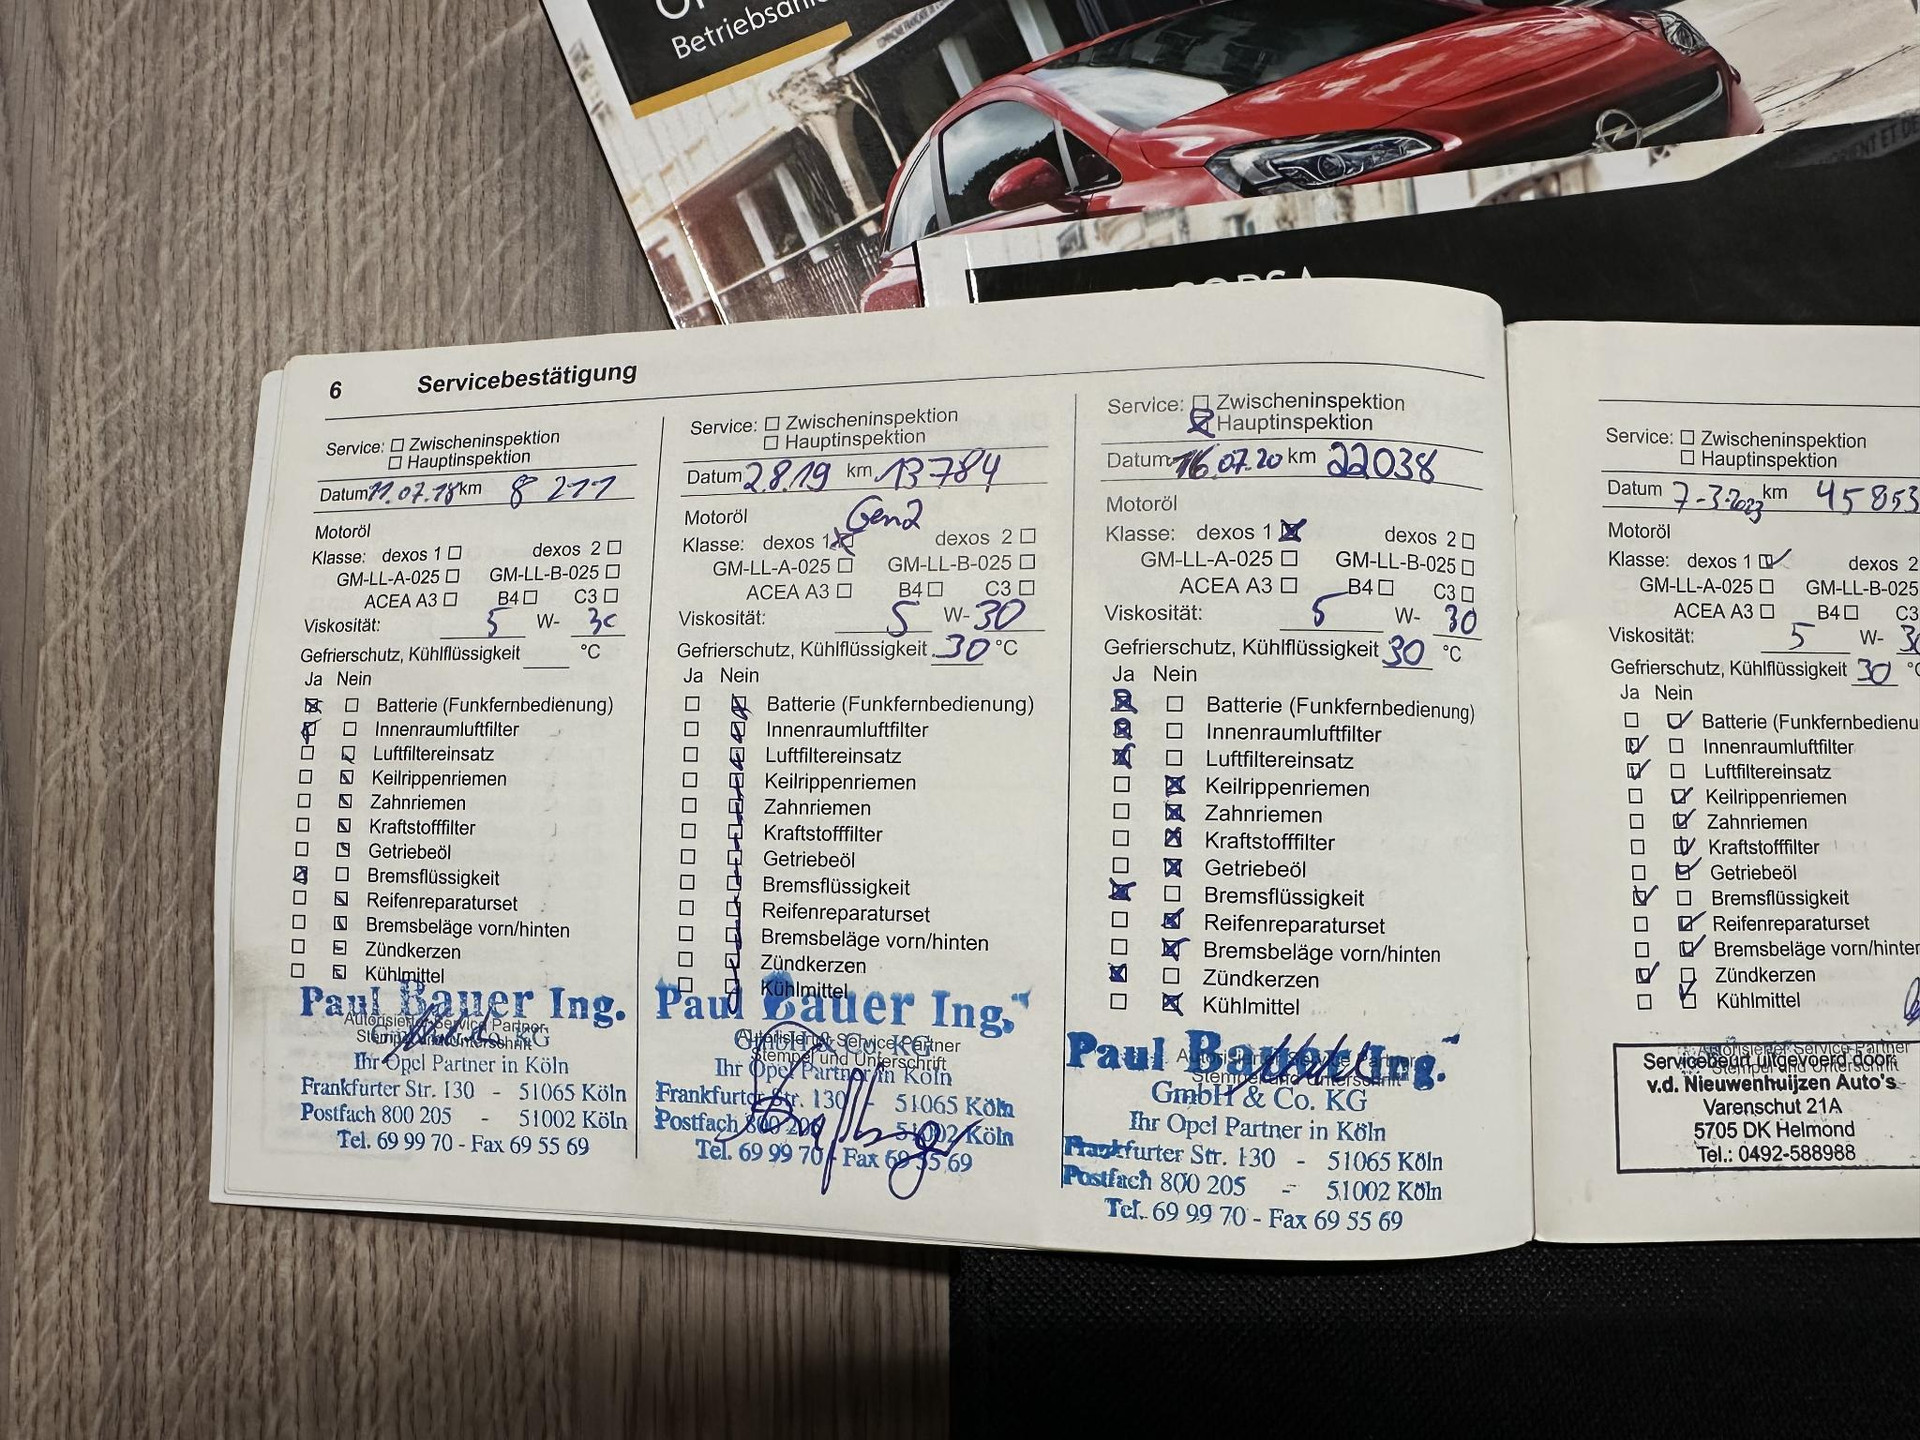 Betriebsanl
CORSA
6 Servicebestätigung
Service: Zwischeninspektion
Hauptinspektion
Datum 11.07.18 km 8 211
Motoröl
Klasse: dexos 1 dexos 2
GM-LL-A-025 GM-LL-B-025
ACEA A3 B4 C3
Viskosität: 5 W- 30
Gefrierschutz, Kühlflüssigkeit °C
Ja Nein
Batterie (Funkfernbedienung)
Innenraumluftfilter
Luftfiltereinsatz
Keilrippenriemen
Zahnriemen
Kraftstofffilter
Getriebeöl
Bremsflüssigkeit
Reifenreparaturset
Bremsbeläge vorn/hinten
Zündkerzen
Kühlmittel
Paul Bauer Ing.
Autorisierter Service Partner
Stempel und Unterschrift
GmbH & Co. KG
Ihr Opel Partner in Köln
Frankfurter Str. 130 - 51065 Köln
Postfach 800 205 - 51002 Köln
Tel. 69 99 70 - Fax 69 55 69
Service: Zwischeninspektion
Hauptinspektion
Datum 2.8.19 km 13784
Motoröl Gen2
Klasse: dexos 1 dexos 2
GM-LL-A-025 GM-LL-B-025
ACEA A3 B4 C3
Viskosität: 5 W- 30
Gefrierschutz, Kühlflüssigkeit 30 °C
Ja Nein
Batterie (Funkfernbedienung)
Innenraumluftfilter
Luftfiltereinsatz
Keilrippenriemen
Zahnriemen
Kraftstofffilter
Getriebeöl
Bremsflüssigkeit
Reifenreparaturset
Bremsbeläge vorn/hinten
Zündkerzen
Kühlmittel
Paul Bauer Ing.
GmbH & Co. KG
Autorisierter Service Partner
Stempel und Unterschrift
Ihr Opel Partner in Köln
Frankfurter Str. 130 - 51065 Köln
Postfach 800 205 - 51002 Köln
Tel. 69 99 70 - Fax 69 55 69
Service: Zwischeninspektion
Hauptinspektion
Datum 16.07.20 km 22038
Motoröl
Klasse: dexos 1 dexos 2
GM-LL-A-025 GM-LL-B-025
ACEA A3 B4 C3
Viskosität: 5 W- 30
Gefrierschutz, Kühlflüssigkeit 30 °C
Ja Nein
Batterie (Funkfernbedienung)
Innenraumluftfilter
Luftfiltereinsatz
Keilrippenriemen
Zahnriemen
Kraftstofffilter
Getriebeöl
Bremsflüssigkeit
Reifenreparaturset
Bremsbeläge vorn/hinten
Zündkerzen
Kühlmittel
Paul Bauer Ing.
Autorisierter Service Partner
Stempel und Unterschrift
GmbH & Co. KG
Ihr Opel Partner in Köln
Frankfurter Str. 130 - 51065 Köln
Postfach 800 205 - 51002 Köln
Tel. 69 99 70 - Fax 69 55 69
Service: Zwischeninspektion
Hauptinspektion
Datum 7-3-2023 km 45853
Motoröl
Klasse: dexos 1 dexos 2
GM-LL-A-025 GM-LL-B-025
ACEA A3 B4 C3
Viskosität: 5 W- 30
Gefrierschutz, Kühlflüssigkeit 30 °C
Ja Nein
Batterie (Funkfernbedienu
Innenraumluftfilter
Luftfiltereinsatz
Keilrippenriemen
Zahnriemen
Kraftstofffilter
Getriebeöl
Bremsflüssigkeit
Reifenreparaturset
Bremsbeläge vorn/hinten
Zündkerzen
Kühlmittel
Autorisierter Service Partner
Stempel und Unterschrift
Servicebeurt uitgevoerd door:
v.d. Nieuwenhuijzen Auto's
Varenschut 21A
5705 DK Helmond
Tel.: 0492-588988